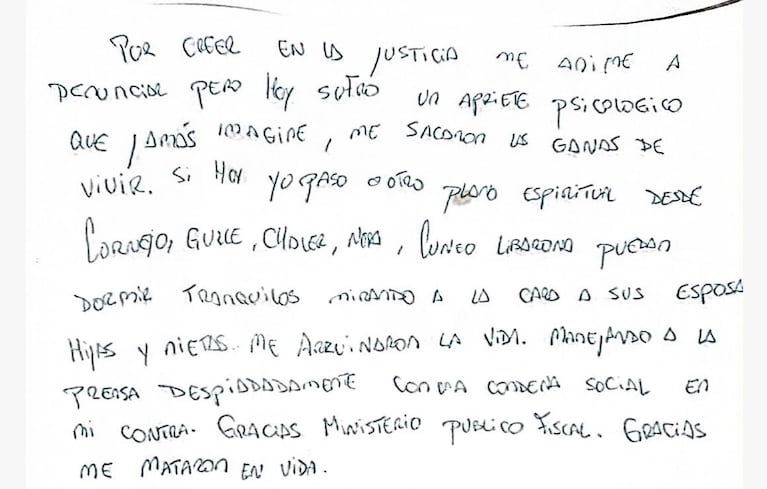 POR CREER EN LA JUSTICIA ME ANIME A
DENUNCIAR PERO HOY SUFRO UN APRIETE PSICOLOGICO
QUE JAMÁS IMAGINE, ME SACARON LAS GANAS DE
VIVIR. SI HOY YO PASO A OTRO PLANO ESPIRITUAL DESDE
CORNEJO, GULLE, CHALER, NORA, CUNEO LIBARONA PUEDAN
DORMIR TRANQUILOS MIRANDO A LA CARA A SUS ESPOSA
HIJAS Y NIETAS. ME ARRUINARON LA VIDA. MANEJANDO A LA
PRENSA DESPIADADAMENTE CON UNA CONDENA SOCIAL EN
MI CONTRA. GRACIAS MINISTERIO PUBLICO FISCAL. GRACIAS
ME MATARON EN VIDA.